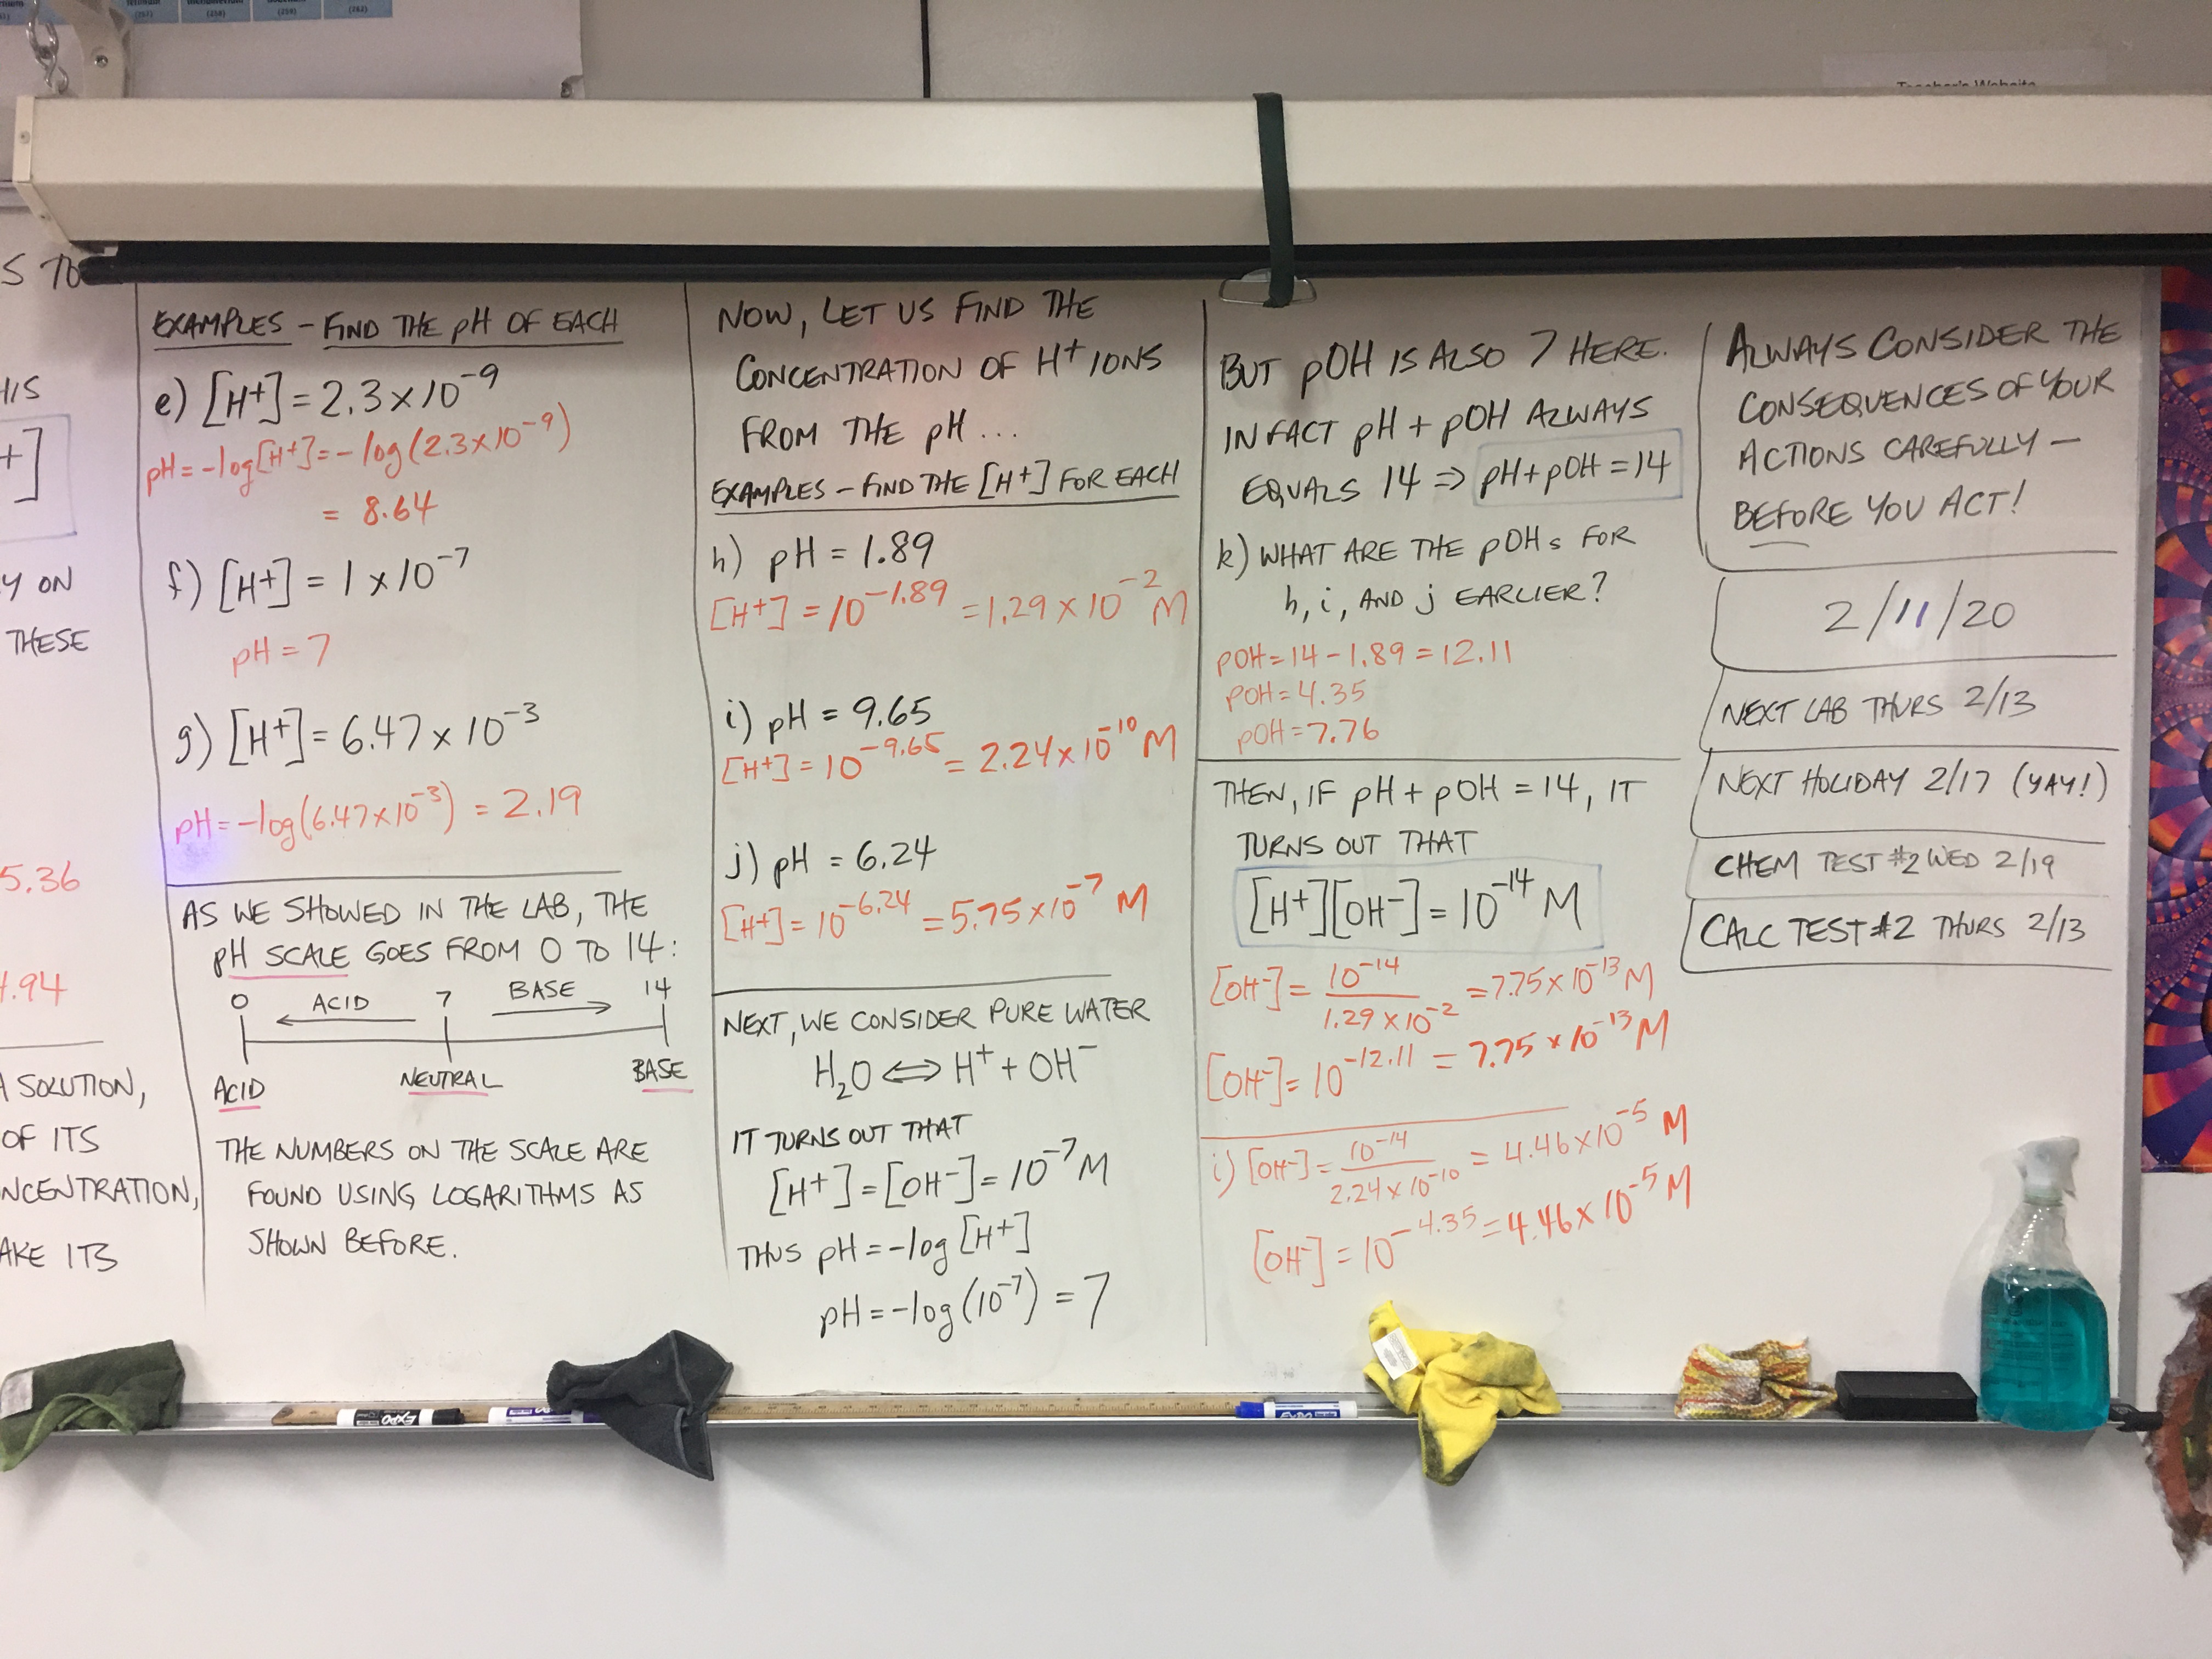 (257)
(258)
(259)
(262)
Teacher's Website
S TO
HIS
+]
Y ON
THESE
5.36
4.94
A SOLUTION,
OF ITS
NCENTRATION,
AKE ITS
EXAMPLES - FIND THE pH OF EACH
e) [H+] = 2.3 x 10^-9
pH = -log[H+] = -log(2.3x10^-9)
= 8.64
f) [H+] = 1 x 10^-7
pH = 7
g) [H+] = 6.47 x 10^-3
pH = -log(6.47x10^-3) = 2.19
AS WE SHOWED IN THE LAB, THE
pH SCALE GOES FROM 0 TO 14:
0 ACID 7 BASE 14
ACID NEUTRAL BASE
THE NUMBERS ON THE SCALE ARE
FOUND USING LOGARITHMS AS
SHOWN BEFORE.
NOW, LET US FIND THE
CONCENTRATION OF H+ IONS
FROM THE pH...
EXAMPLES - FIND THE [H+] FOR EACH
h) pH = 1.89
[H+] = 10^-1.89 = 1.29 x 10^-2 M
i) pH = 9.65
[H+] = 10^-9.65 = 2.24x10^-10 M
j) pH = 6.24
[H+] = 10^-6.24 = 5.75x10^-7 M
NEXT, WE CONSIDER PURE WATER
H₂O ⇔ H⁺ + OH⁻
IT TURNS OUT THAT
[H+] = [OH-] = 10^-7 M
THUS pH = -log [H+]
pH = -log(10^-7) = 7
BUT pOH IS ALSO 7 HERE.
IN FACT pH + pOH ALWAYS
EQUALS 14 ⇒ pH + pOH = 14
k) WHAT ARE THE pOHs FOR
h, i, AND j EARLIER?
pOH = 14 - 1.89 = 12.11
pOH = 4.35
pOH = 7.76
THEN, IF pH + pOH = 14, IT
TURNS OUT THAT
[H+][OH-] = 10^-14 M
[OH-] = 10^-14 / 1.29 x 10^-2 = 7.75x10^-13 M
[OH-] = 10^-12.11 = 7.75 x 10^-13 M
i) [OH-] = 10^-14 / 2.24 x 10^-10 = 4.46x10^-5 M
[OH-] = 10^-4.35 = 4.46 x 10^-5 M
ALWAYS CONSIDER THE
CONSEQUENCES OF YOUR
ACTIONS CAREFULLY —
BEFORE YOU ACT!
2/11/20
NEXT LAB THURS 2/13
NEXT HOLIDAY 2/17 (YAY!)
CHEM TEST #2 WED 2/19
CALC TEST #2 THURS 2/13
EXPO
EXPO